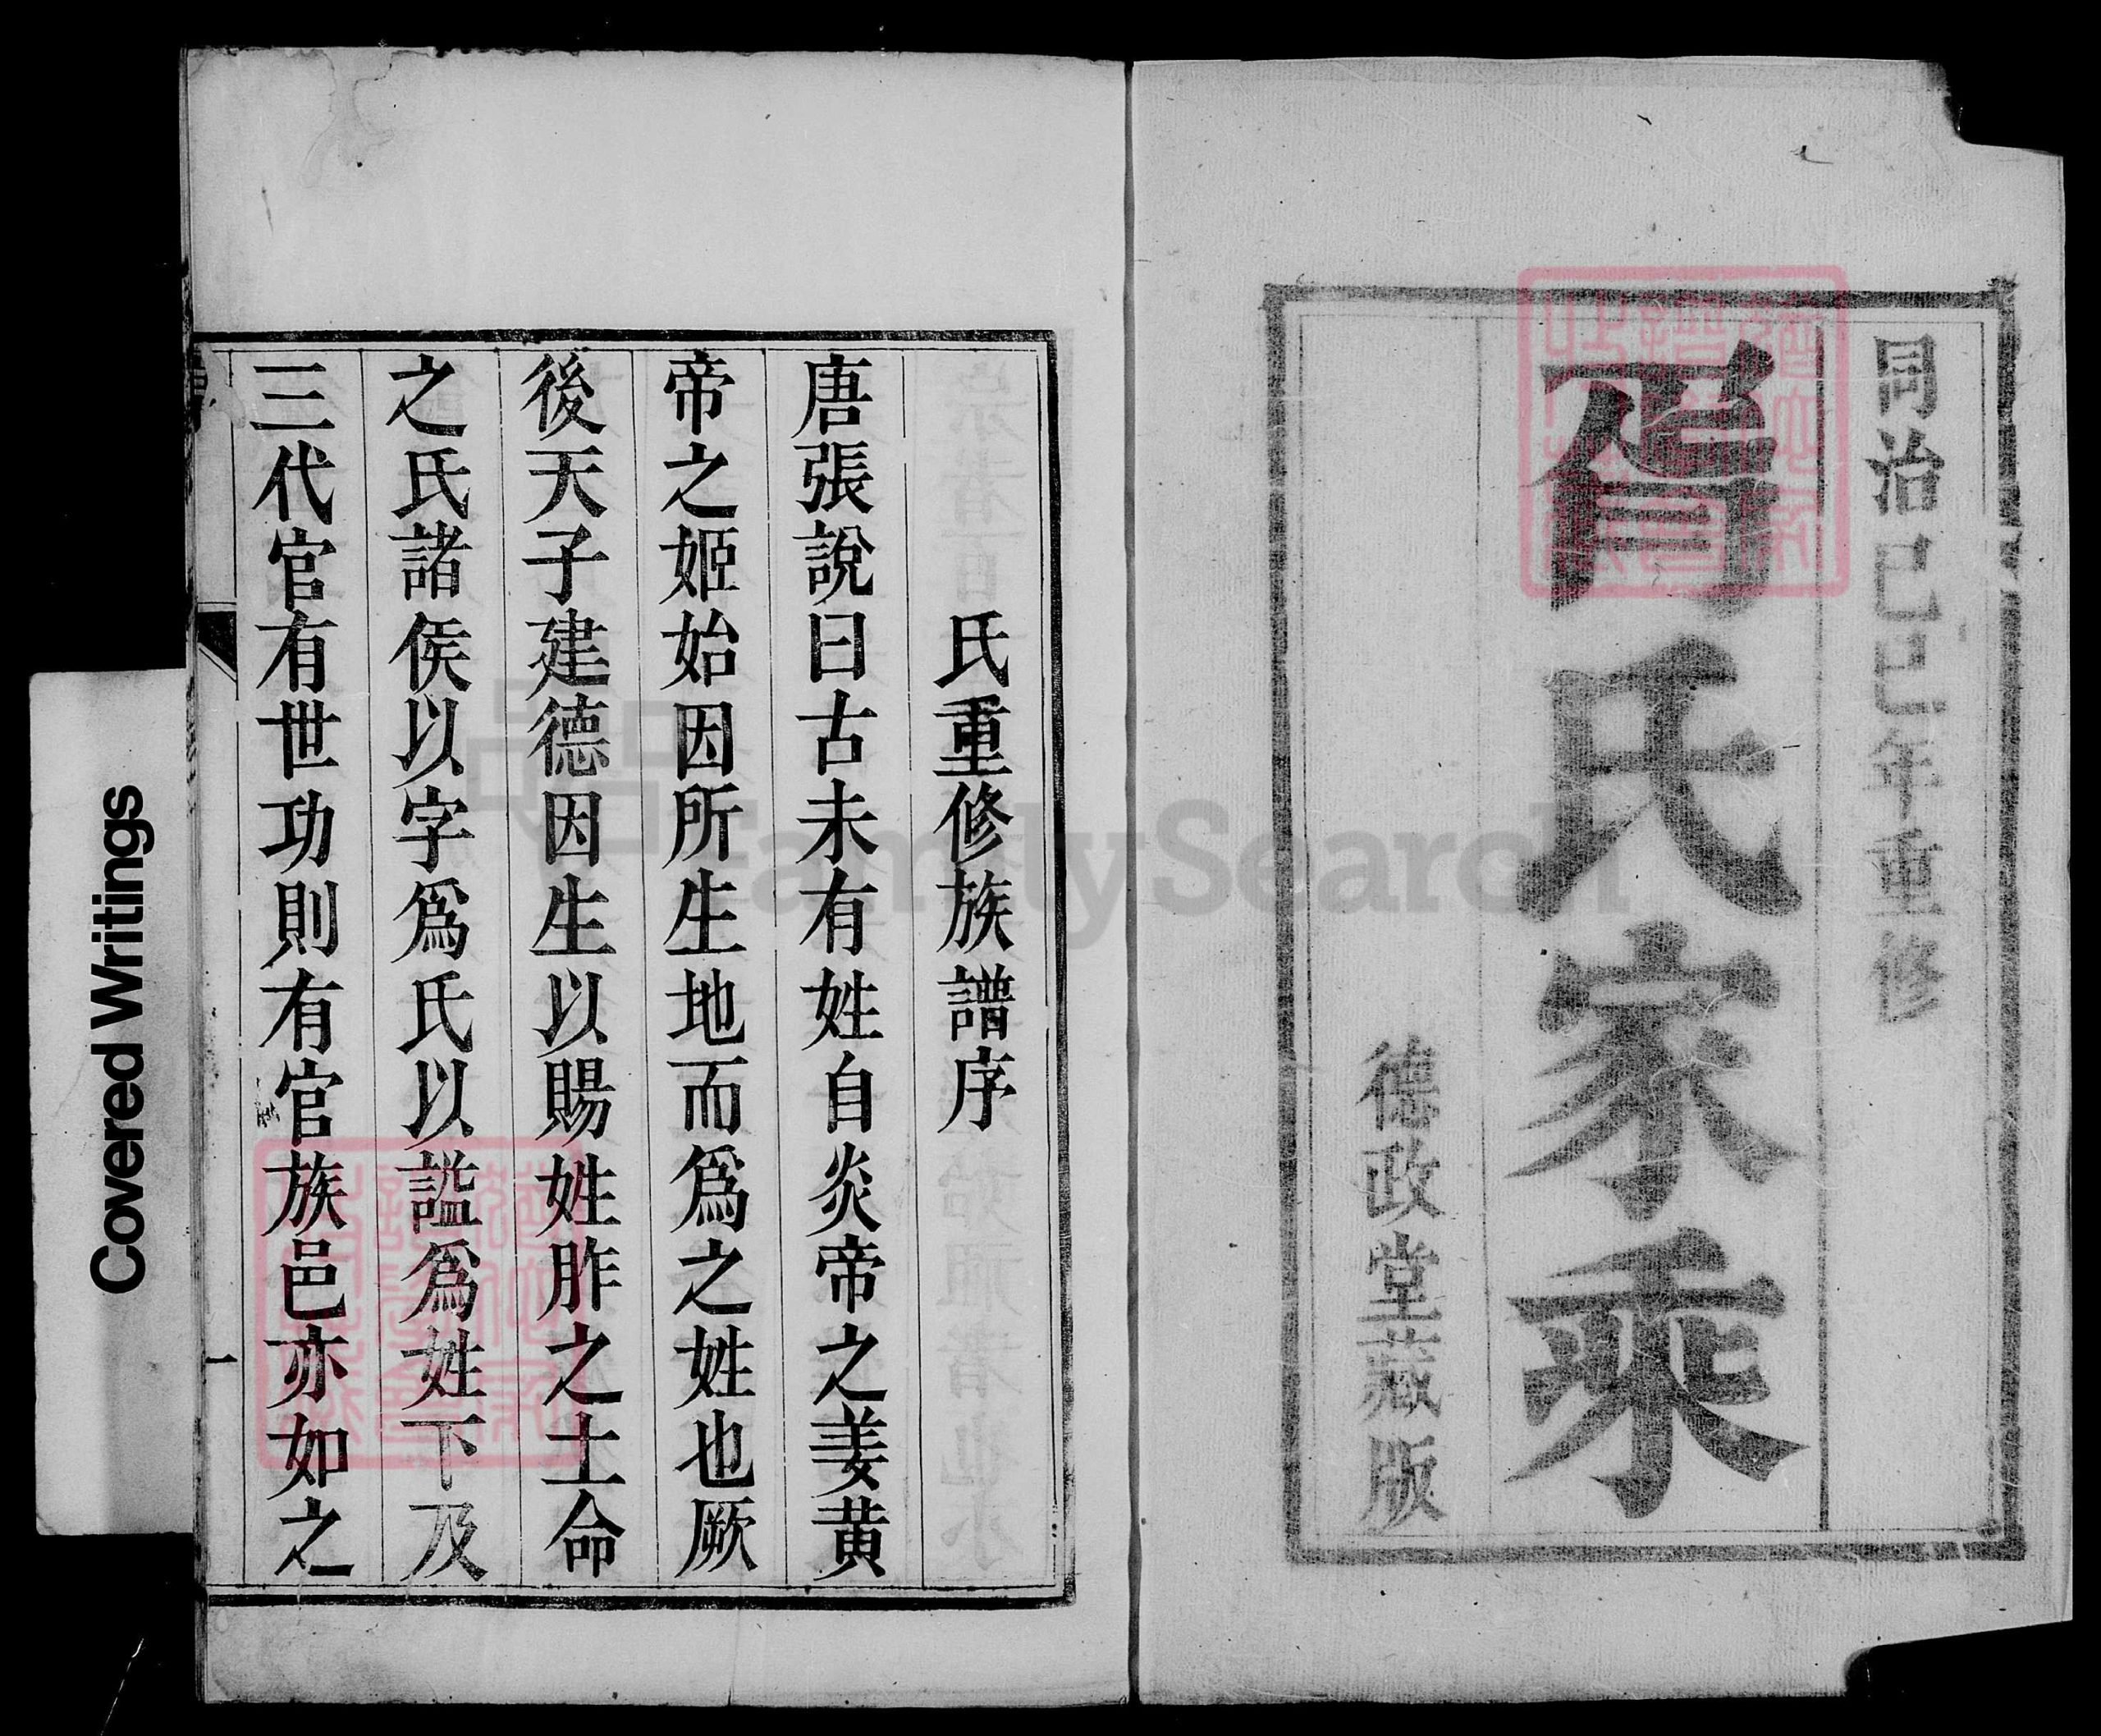 同治己巳年重修
胥氏家乘
德政堂藏版
氏重修族譜序
唐張說曰古未有姓自炎帝之姜黄
帝之姬始因所生地而爲之姓也厥
後天子建德因生以賜姓胙之土命
之氏諸侯以字爲氏以謚爲姓下及
三代官有世功則有官族邑亦如之
一
Covered Writings
FamilySearch